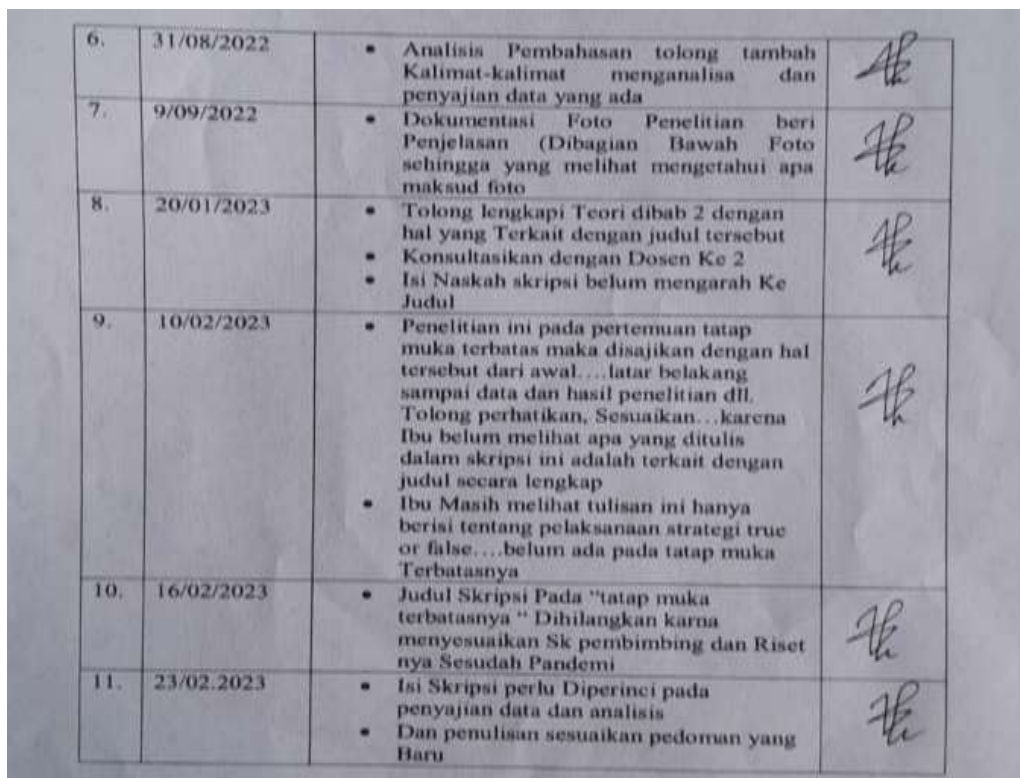 6. 31/08/2022 • Analisis Pembahasan tolong tambah
Kalimat-kalimat menganalisa dan
penyajian data yang ada
7. 9/09/2022 • Dokumentasi Foto Penelitian beri
Penjelasan (Dibagian Bawah Foto
sehingga yang melihat mengetahui apa
maksud foto
8. 20/01/2023 • Tolong lengkapi Teori dibab 2 dengan
hal yang Terkait dengan judul tersebut
• Konsultasikan dengan Dosen Ke 2
• Isi Naskah skripsi belum mengarah Ke
Judul
9. 10/02/2023 • Penelitian ini pada pertemuan tatap
muka terbatas maka disajikan dengan hal
tersebut dari awal....latar belakang
sampai data dan hasil penelitian dll.
Tolong perhatikan, Sesuaikan...karena
Ibu belum melihat apa yang ditulis
dalam skripsi ini adalah terkait dengan
judul secara lengkap
• Ibu Masih melihat tulisan ini hanya
berisi tentang pelaksanaan strategi true
or false....belum ada pada tatap muka
Terbatasnya
10. 16/02/2023 • Judul Skripsi Pada "tatap muka
terbatasnya " Dihilangkan karna
menyesuaikan Sk pembimbing dan Riset
nya Sesudah Pandemi
11. 23/02.2023 • Isi Skripsi perlu Diperinci pada
penyajian data dan analisis
• Dan penulisan sesuaikan pedoman yang
Baru